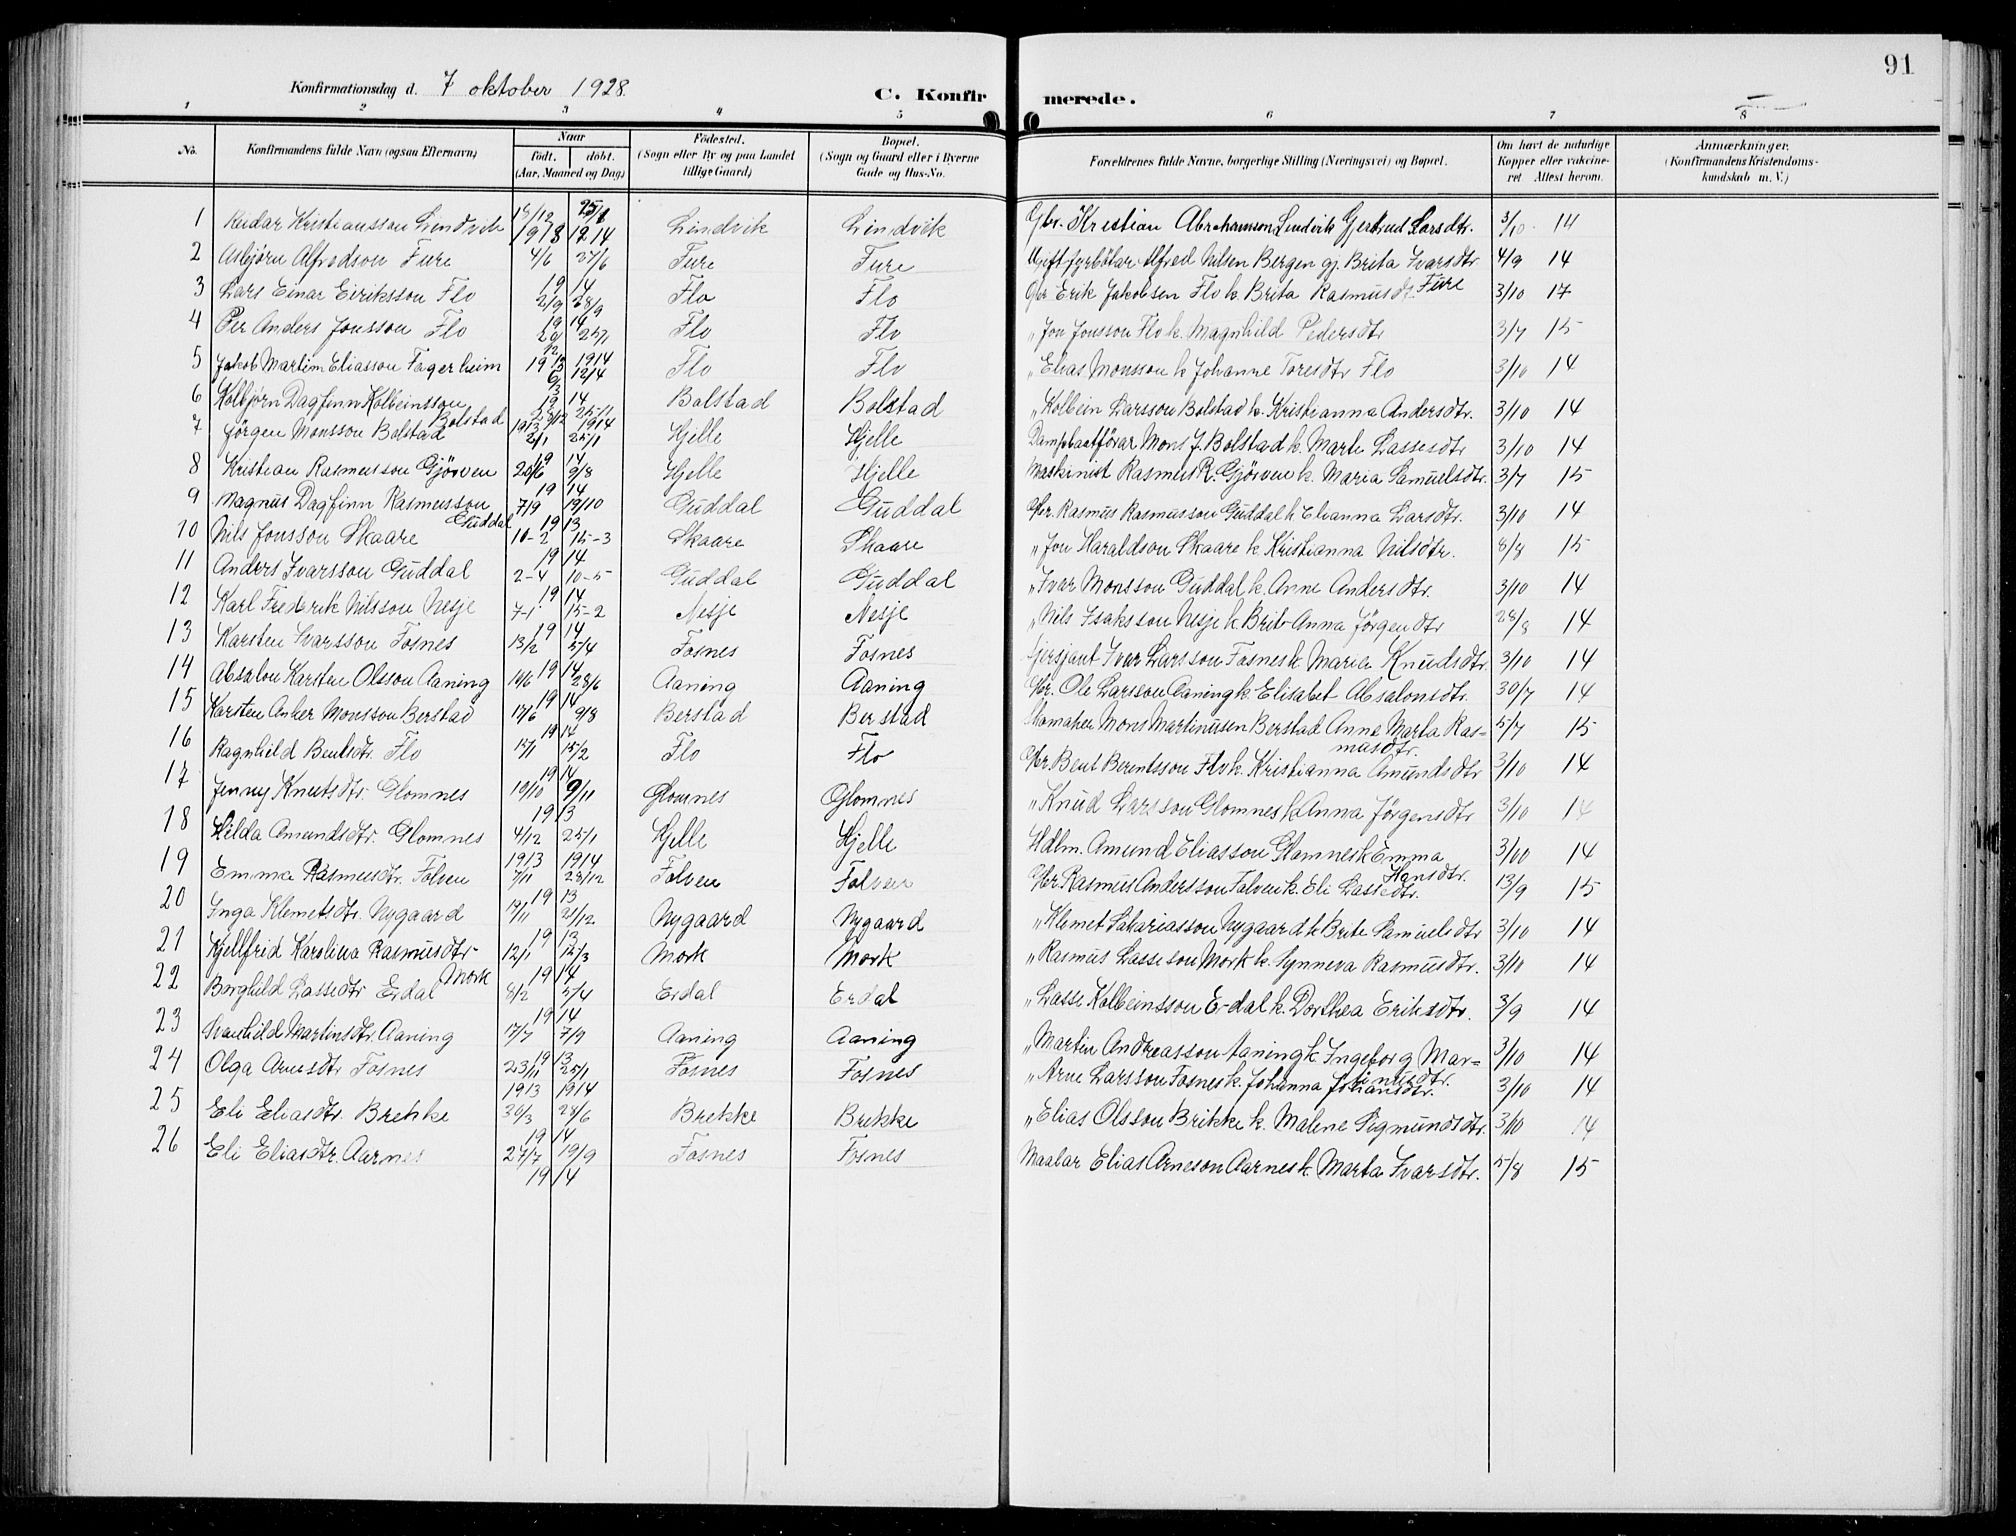 91
Konfirmationsdag d. 7 oktober 1928.
C. Konfirmerede.
1 2 3 4 5 6 7 8
No. Konfirmandens fulde Navn (ogsaa Efternavn) Naar födt. döbt. (Aar, Maaned og Dag) Födested. (Sogn eller By og paa Landet tillige Gaard) Bopæl. (Sogn og Gaard eller i Byerne Gade og Hus-No. Forældrenes fulde Navne, borgerlige Stilling (Næringsvei) og Bopæl. Om havt de naturlige Kopper eller vakcineret. Attest herom. Anmærkninger. (Konfirmandens Kristendomskundskab m. V.)
1 Reidar Kristiansson Lindvik Lindvik Lindvik Gbr. Kristian Abrahamson Lindvik Gjertrud Larsdtr. 3/10 14
2 Asbjörn Alfredson Fure 4/6 27/6 19 14 Fure Fure Ugift fyrbötar Alfred Nilsen Bergen gj. Brita Ivarsdtr Fure 4/9 14
3 Lars Einar Eiriksson Flo 2/9 28/9 19 14 Flo Flo Gbr Erik Jakobsen Flo k. Brita Rasmusdtr. 3/10 17
4 Per Anders Jonsson Flo 25/1 Flo Flo " Jon Jonsson Flo k. Magnhild Pedersdtr 3/7 15
5 Jakob Martin Eliasson Fagerheim 1914 Flo Flo " Elias Monsson k Johanne Toresdtr Flo 3/10 14
6 Kolbjörn Dagfinn Kolbeinsson Bolstad 28/12 25-1 1913 1914 Bolstad Bolstad " Kolbein Larsson Bolstad k. Kristianna Andersdtr. 3/10 14
7 Jörgen Monsson Bolstad 2/1 25/1 19 14 Hjelle Hjelle Dampbaatförar Mons J. Bolstad k. Marte Lassesdtr 3/10 14
8 Kristian Rasmusson Gjörven 20/6 9/8 19 14 Hjelle Hjelle Maskinist Rasmus R. Gjörven k. Maria Samuelsdtr. 3/7 15
9 Magnus Dagfinn Rasmusson Guddal 7/9 19/10 19 13 Guddal Guddal Gbr. Rasmus Rasmusson Guddal k Elianna Larsdtr. 3/10 14
10 Nils Jonsson Skaare 10-2 15-3 19 14 Skaare Skaare " Jon Haraldson Skaare k Kristianna Nilsdtr. 8/8 15
11 Anders Ivarsson Guddal 2-4 10-5 19 14 Guddal Guddal " Ivar Monsson Guddal k. Anne Andersdtr. 3/10 14
12 Karl Frederik Nilsson Nesje 7-1 15-2 19 14 Nesje Nesje " Nils Isaksson Nesje k Brit-Anna Jörgensdtr 28/8 14
13 Karsten Ivarsson Fosnes 13/2 5/4 19 14 Fosnes Fosnes Sjersjant Ivar Larsson Fosnes k. Maria Knudsdtr. 3/10 14
14 Absalon Karsten Olsson Aaning 14/6 28/6 19 14 Aaning Aaning Gbr. Ole Larsson Aaning k. Elisabet Absalonsdtr. 30/7 14
15 Karsten Anker Monsson Berstad 17/6 9/8 19 14 Berstad Berstad Skomaker Mons Martinusen Berstad Anne Marta Rasmusdtr. 5/7 15
16 Ragnhild Bentsdtr. Flo 15/1 15/2 19 14 Flo Flo Gbr. Bent Berentsson Flo k. Kristianna Amundsdtr 3/10 14
17 Jenny Knutsdtr. Glomnes 10/10 9/11 19 13 Glomnes Glomnes " Knud Larsson Glomnes k Anna Jörgensdtr 3/10 14
18 Hilda Amundsdtr. Glomnes 4/12 25/1 1913 1914 Hjelle Hjelle Hdlm. Amund Eliasson Glomnes k Emma Hansdtr. 14
19 Emma Rasmusdtr. Folven 7/11 23/12 19 13 Folven Folven Gbr. Rasmus Andersson Folven k. Eli Lassedtr. 13/9 15
20 Inga Klemetsdtr. Nygaard 21/12 19 13 Nygaard Nygaard " Klemet Sakariasson Nygaard k Brite Samuelsdtr 3/10 14
21 Kjellfrid Karolina Rasmusdtr Mork 12/1 12/3 19 14 Mork Mork " Rasmus Lasseson Mork k. Synneva Rasmusdtr. 3/10 14
22 Borghild Lassedtr Erdal 8/2 5/4 19 14 Erdal Erdal " Lasse Kolbeinsson Erdal k. Dorthea Eriksdtr. 3/9 14
23 Svanhild Martinsdtr. Aaning 17/7 7/9 Aaning Aaning " Martin Andreasson Aaning k Ingeborg Martinusdtr. 3/10 14
24 Olga Arnesdtr Fosnes 23/11 25/1 1913 1914 Fosnes Fosnes " Arne Larsson Fosnes k. Johanna Johansdtr. 3/10 14
25 Eli Eliasdtr. Brekke 30/3 28/6 19 14 Brekke Brekke " Elias Olsson Brekke k. Malene Sigmundsdtr. 3/10 14
26 Eli Eliasdtr. Aarnes 27/7 19/9 19 14 Fosnes Fosnes Maalar Elias Arneson Aarnes k. Marta Ivarsdtr. 5/8 15